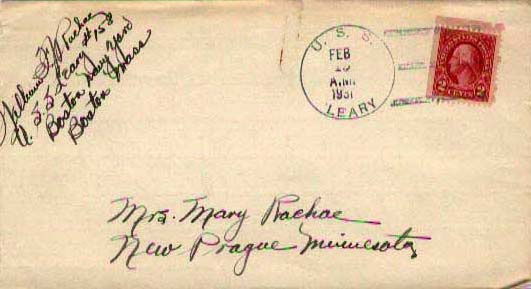 William F. J. Rachac
U.S.S. Leary #158
Boston Navy Yard
Boston Mass
U. S. S.
FEB
A.M.
1931
LEARY
2 CENTS 2
Mrs. Mary Rachac
New Prague Minnesota